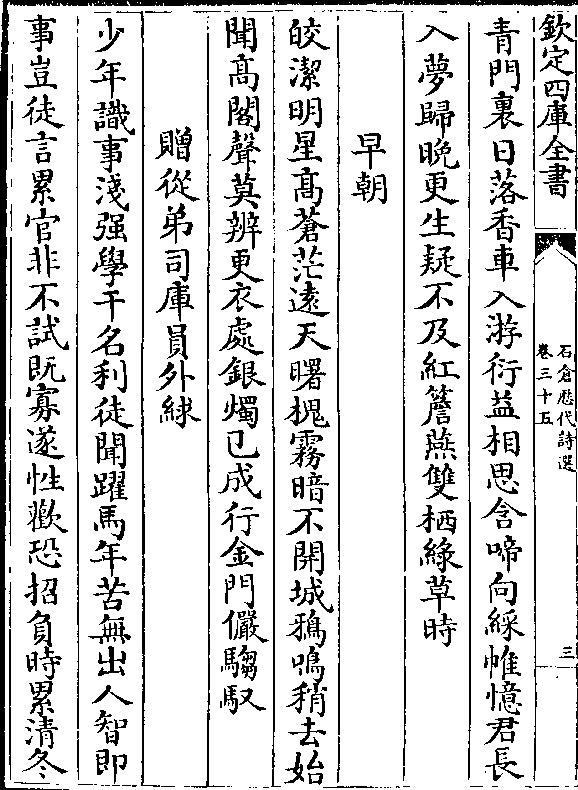 欽定四庫全書
石倉歷代詩選
卷三十五
三
青門裏日落香車入游衍益相思含啼向綵帷憶君長
入夢歸晩更生疑不及紅簷燕雙栖綠草時
早朝
皎潔明星髙蒼茫逺天曙槐霧暗不開城鴉鳴稍去始
聞髙閣聲莫辨更衣處銀燭已成行金門儼騶馭
贈從弟司庫員外絿
少年識事淺强學干名利徒聞躍馬年苦無出人智即
事豈徒言累官非不試既寡遂性歡恐招負時累清冬